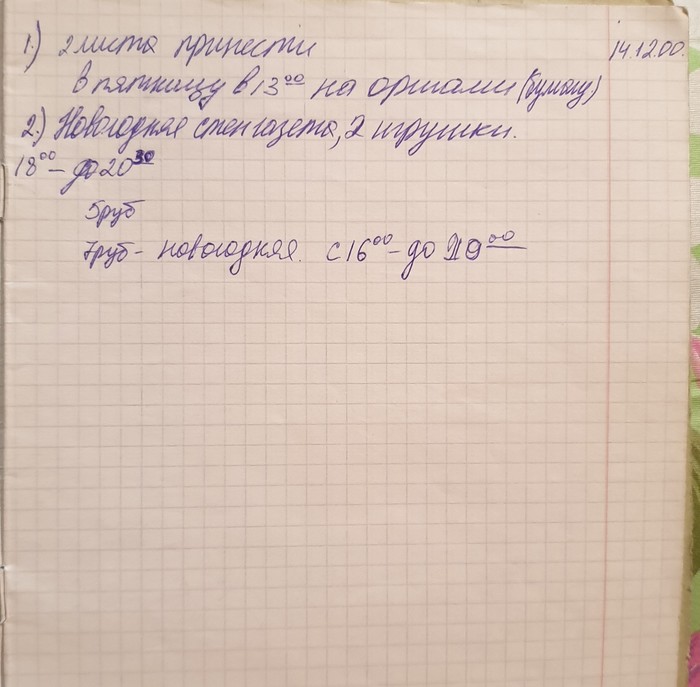 1.) 2 листа принести 14.12.00.
в пятницу в 13⁰⁰ на оригами (бумагу)
2.) Новогодняя стенгазета, 2 игрушки.
18⁰⁰ - до 20³⁰
5руб
7руб - новогодняя. с 16⁰⁰ - до 19⁰⁰